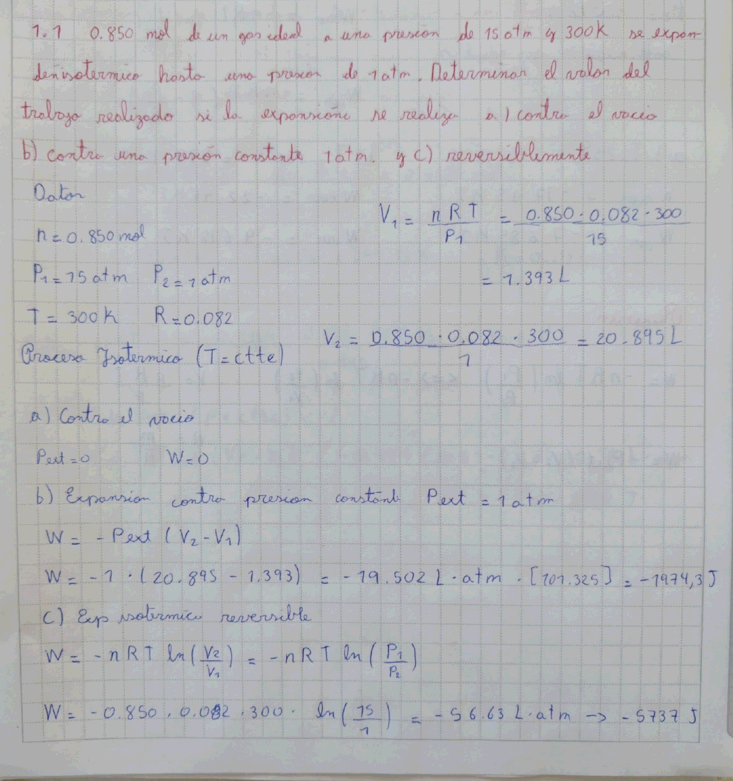 1.1 0.850 mol de un gas ideal a una presion de 15 atm y 300K se expon-
den isotermico hasta una presion de 1 atm. Determinar el valor del
trabajo realizado si la expansione se realiza a.) contra el vacio
b) contra una presión constante 1 atm. y c) reversiblemente
Datos
n = 0.850 mol
P1 = 15 atm P2 = 1 atm
T = 300 K R = 0.082
Proceso Isotermico (T = ctte)
V1 = nRT / P1 = 0.850 · 0.082 · 300 / 15
= 1.393 L
V2 = 0.850 · 0.082 · 300 / 1 = 20.895 L
a) Contra el vacio
Pext = 0 W = 0
b) Expansion contra presion constant Pext = 1 atm
W = - Pext (V2 - V1)
W = -1 · (20.895 - 1.393) = -19.502 L · atm · [101.325] = -1974,3 J
c) Exp isotermica reversible
W = -nRT ln(V2/V1) = -nRT ln(P1/P2)
W = -0.850 · 0.082 · 300 · ln(15/1) = -56.63 L·atm -> -5737 J